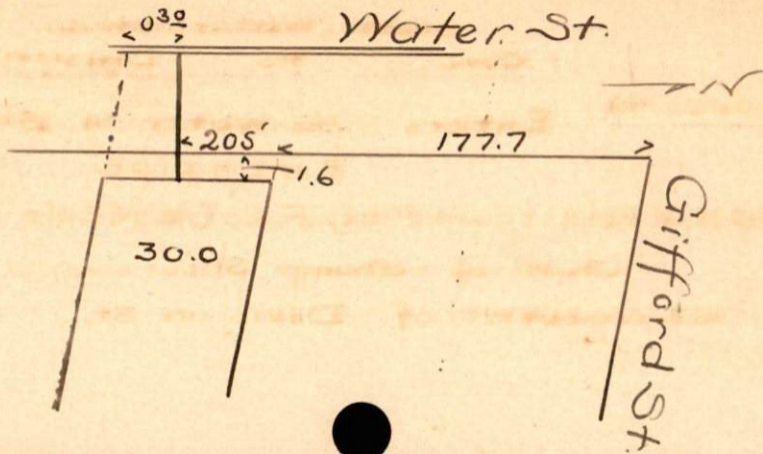 0 30
Water St.
N
205'
177.7
1.6
30.0
Gifford St.